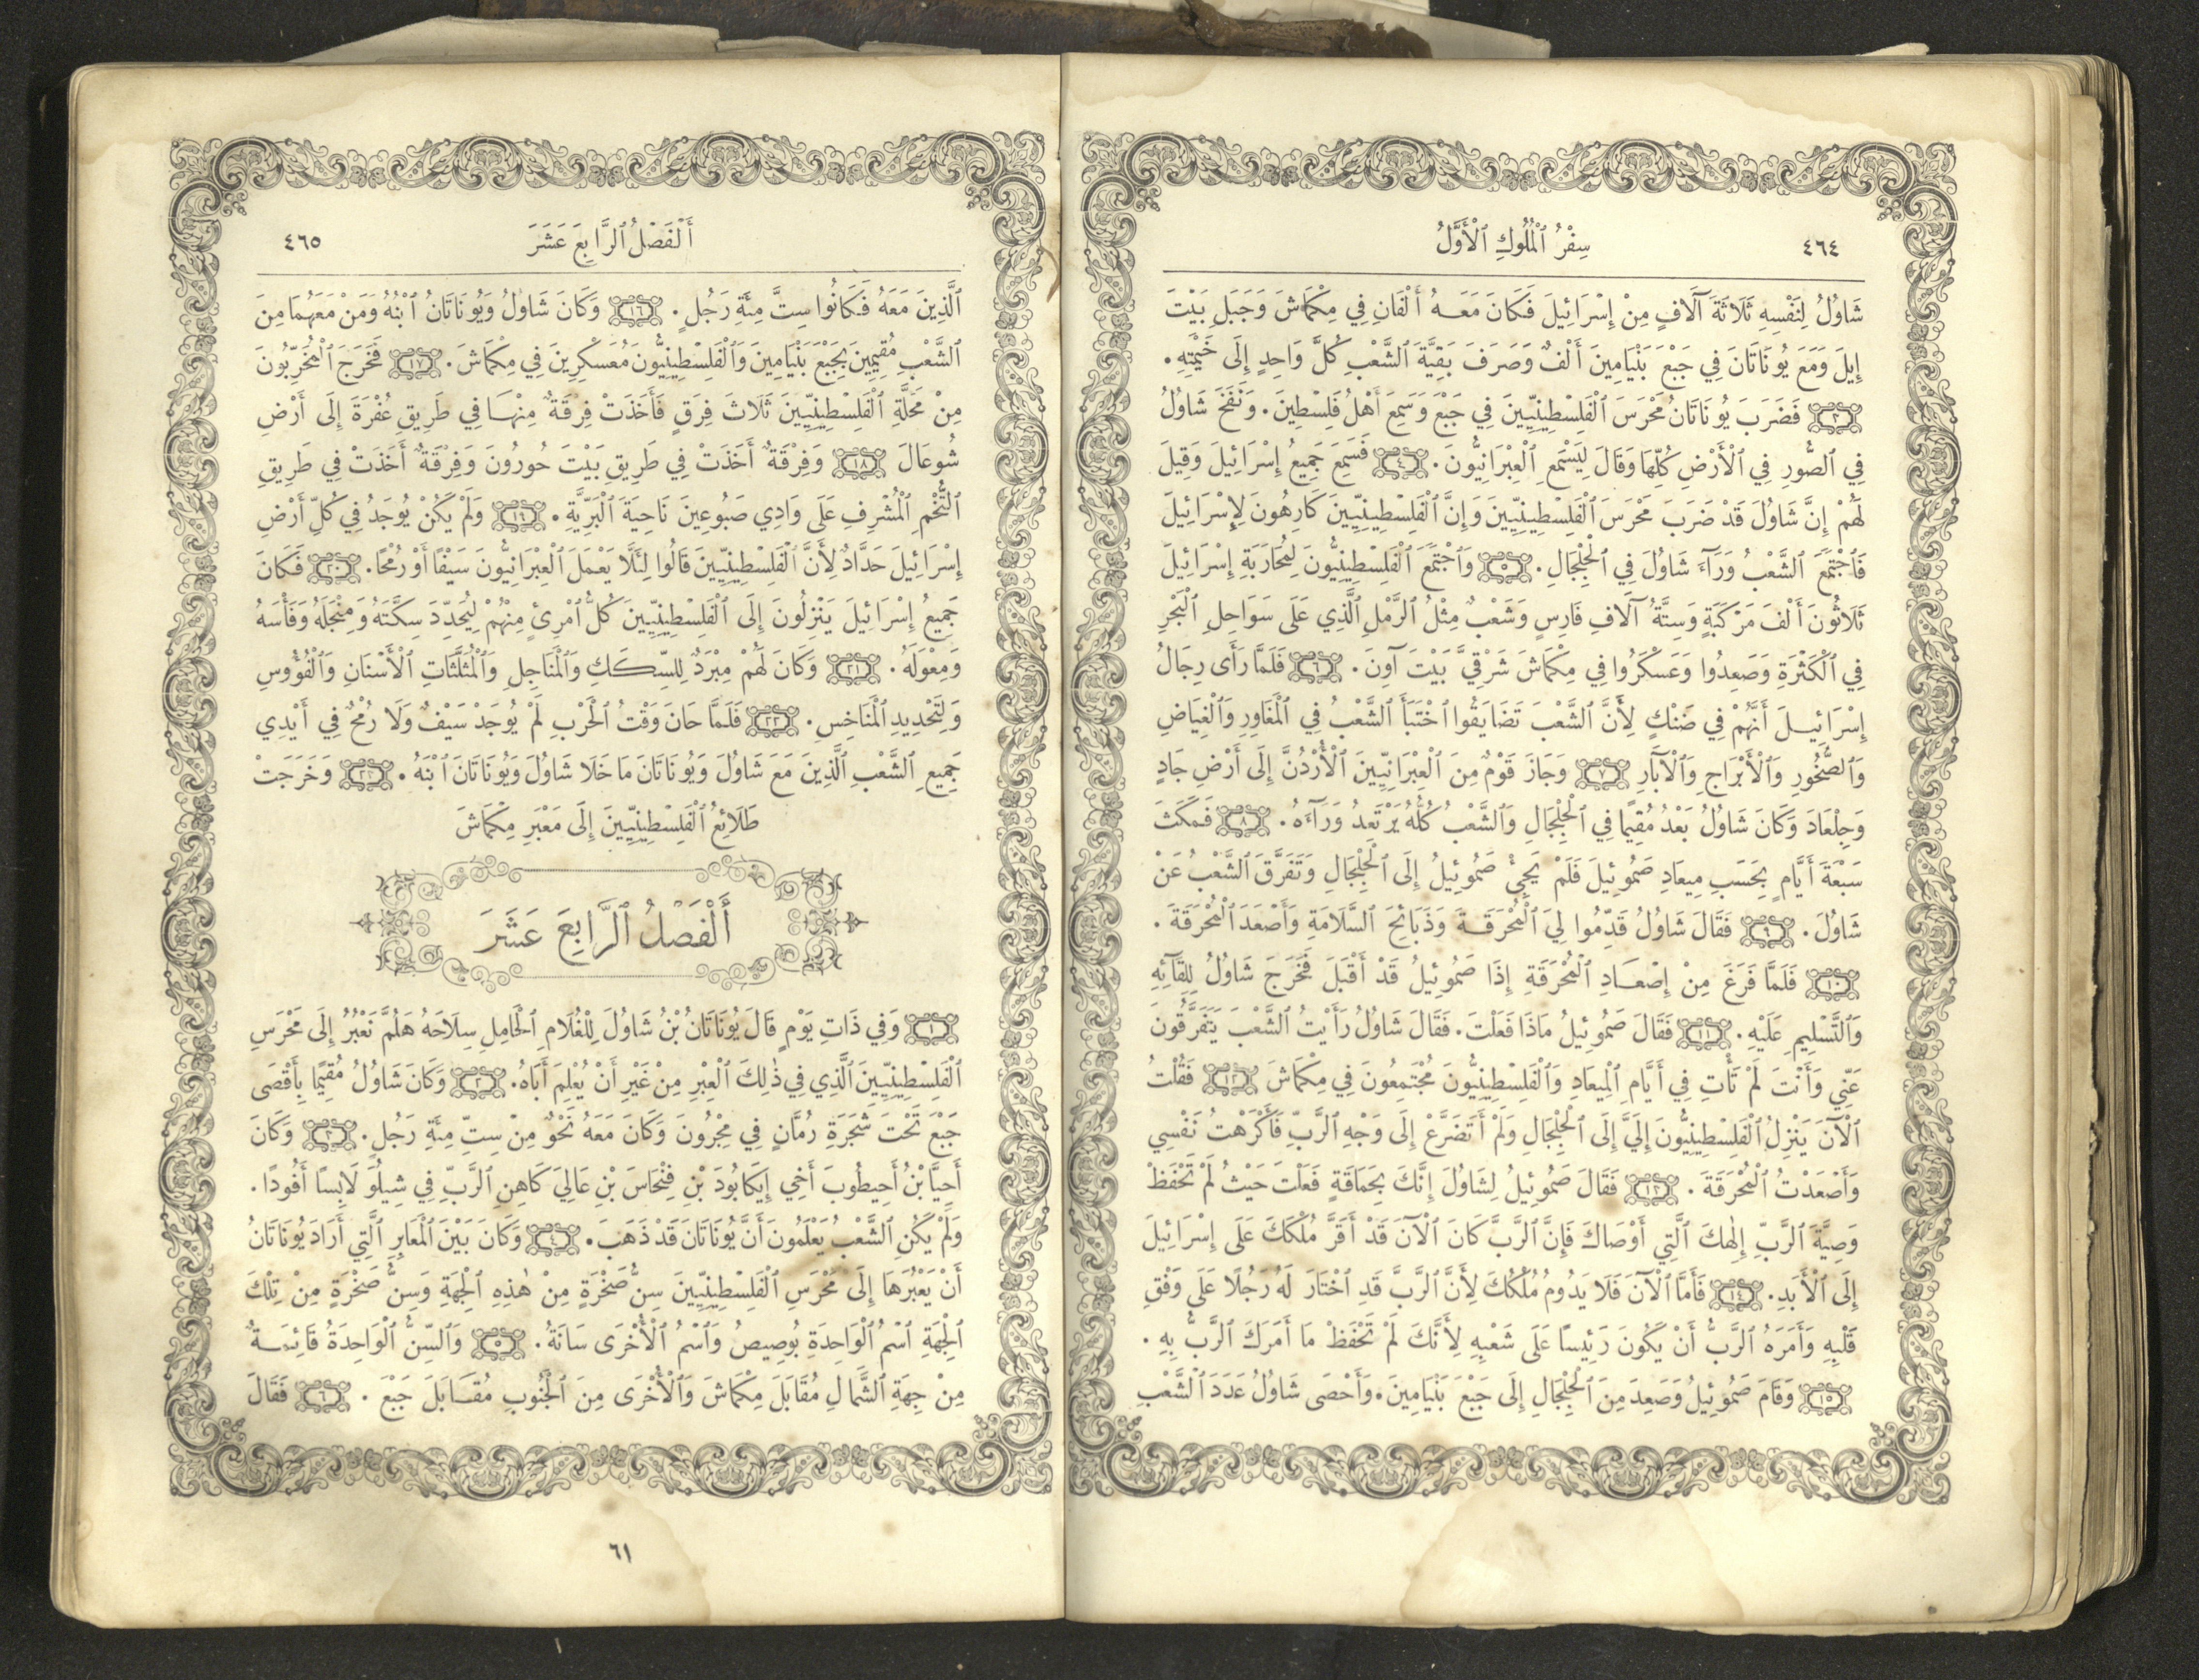 ٤٦٤
سِفْرُ ٱلْمُلُوكِ ٱلْأَوَّلُ
شَاوُلُ لِنَفْسِهِ ثَلَاثَةَ آلَافٍ مِنْ إِسْرَائِيلَ فَكَانَ مَعَهُ أَلْفَانِ فِي مِكْمَاشَ وَجَبَلِ بَيْتَ
إِيلَ وَمَعَ يُونَاتَانَ فِي جَبْعَ بَنْيَامِينَ أَلْفٌ وَصَرَفَ بَقِيَّةَ ٱلشَّعْبِ كُلَّ وَاحِدٍ إِلَى خَيْمَتِهِ.
٣ فَضَرَبَ يُونَاتَانُ مَحْرَسَ ٱلْفَلِسْطِينِيِّينَ فِي جَبْعَ وَسَمِعَ أَهْلُ فَلِسْطِينَ. وَنَفَخَ شَاوُلُ
فِي ٱلصُّورِ فِي ٱلْأَرْضِ كُلِّهَا وَقَالَ لِيَسْتَمِعِ ٱلْعِبْرَانِيُّونَ. ٤ فَسَمِعَ جَمِيعُ إِسْرَائِيلَ وَقِيلَ
لَهُمْ إِنَّ شَاوُلَ قَدْ ضَرَبَ مَحْرَسَ ٱلْفَلِسْطِينِيِّينَ وَإِنَّ ٱلْفَلِسْطِينِيِّينَ كَارِهُونَ لِإِسْرَائِيلَ
فَٱجْتَمَعَ ٱلشَّعْبُ وَرَآءَ شَاوُلَ فِي ٱلْجِلْجَالِ. ٥ وَٱجْتَمَعَ ٱلْفَلِسْطِينِيُّونَ لِمُحَارَبَةِ إِسْرَائِيلَ
ثَلَاثُونَ أَلْفَ مَرْكَبَةٍ وَسِتَّةُ آلَافِ فَارِسٍ وَشَعْبٌ مِثْلُ ٱلرَّمْلِ ٱلَّذِي عَلَى سَوَاحِلِ ٱلْبَحْرِ
فِي ٱلْكَثْرَةِ وَصَعِدُوا وَعَسْكَرُوا فِي مِكْمَاشَ شَرْقِيَّ بَيْتَ آوِنَ. ٦ فَلَمَّا رَأَى رِجَالُ
إِسْرَائِيلَ أَنَّهُمْ فِي ضَنْكٍ لِأَنَّ ٱلشَّعْبَ تَضَايَقُوا ٱخْتَبَأَ ٱلشَّعْبُ فِي ٱلْمَغَاوِرِ وَٱلْغِيَاضِ
وَٱلصُّخُورِ وَٱلْأَبْرَاجِ وَٱلْآبَارِ ٧ وَجَازَ قَوْمٌ مِنَ ٱلْعِبْرَانِيِّينَ ٱلْأُرْدُنَّ إِلَى أَرْضِ جَادٍ
وَجِلْعَادَ وَكَانَ شَاوُلُ بَعْدُ مُقِيمًا فِي ٱلْجِلْجَالِ وَٱلشَّعْبُ كُلُّهُ يَرْتَعِدُ وَرَآءَهُ. ٨ فَمَكَثَ
سَبْعَةَ أَيَّامٍ بِحَسَبِ مِيعَادِ صَمُوئِيلَ فَلَمْ يَجِئْ صَمُوئِيلُ إِلَى ٱلْجِلْجَالِ وَتَفَرَّقَ ٱلشَّعْبُ عَنْ
شَاوُلَ. ٩ فَقَالَ شَاوُلُ قَدِّمُوا لِيَ ٱلْمُحْرَقَةَ وَذَبَائِحَ ٱلسَّلَامَةِ وَأَصْعَدَ ٱلْمُحْرَقَةَ.
١٠ فَلَمَّا فَرَغَ مِنْ إِصْعَادِ ٱلْمُحْرَقَةِ إِذَا صَمُوئِيلُ قَدْ أَقْبَلَ فَخَرَجَ شَاوُلُ لِلِقَآئِهِ
وَٱلتَّسْلِيمِ عَلَيْهِ. ١١ فَقَالَ صَمُوئِيلُ مَاذَا فَعَلْتَ. فَقَالَ شَاوُلُ رَأَيْتُ ٱلشَّعْبَ يَتَفَرَّقُونَ
عَنِّي وَأَنْتَ لَمْ تَأْتِ فِي أَيَّامِ ٱلْمِيعَادِ وَٱلْفَلِسْطِينِيُّونَ مُجْتَمِعُونَ فِي مِكْمَاشَ ١٢ فَقُلْتُ
ٱلْآنَ يَنْزِلُ ٱلْفَلِسْطِينِيُّونَ إِلَيَّ إِلَى ٱلْجِلْجَالِ وَلَمْ أَتَضَرَّعْ إِلَى وَجْهِ ٱلرَّبِّ فَأَكْرَهْتُ نَفْسِي
وَأَصْعَدْتُ ٱلْمُحْرَقَةَ. ١٣ فَقَالَ صَمُوئِيلُ لِشَاوُلَ إِنَّكَ بِحَمَاقَةٍ فَعَلْتَ حَيْثُ لَمْ تَحْفَظْ
وَصِيَّةَ ٱلرَّبِّ إِلٰهِكَ ٱلَّتِي أَوْصَاكَ فَإِنَّ ٱلرَّبَّ كَانَ ٱلْآنَ قَدْ أَقَرَّ مُلْكَكَ عَلَى إِسْرَائِيلَ
إِلَى ٱلْأَبَدِ. ١٤ فَأَمَّا ٱلْآنَ فَلَا يَدُومُ مُلْكُكَ لِأَنَّ ٱلرَّبَّ قَدِ ٱخْتَارَ لَهُ رَجُلًا عَلَى وَفْقِ
قَلْبِهِ وَأَمَرَهُ ٱلرَّبُّ أَنْ يَكُونَ رَئِيسًا عَلَى شَعْبِهِ لِأَنَّكَ لَمْ تَحْفَظْ مَا أَمَرَكَ ٱلرَّبُّ بِهِ.
١٥ وَقَامَ صَمُوئِيلُ وَصَعِدَ مِنَ ٱلْجِلْجَالِ إِلَى جَبْعَ بَنْيَامِينَ. وَأَحْصَى شَاوُلُ عَدَدَ ٱلشَّعْبِ
أَلْفَصْلُ ٱلرَّابِعَ عَشَرَ
٤٦٥
ٱلَّذِينَ مَعَهُ فَكَانُوا سِتَّ مِئَةِ رَجُلٍ. ١٦ وَكَانَ شَاوُلُ وَيُونَاتَانُ ٱبْنُهُ وَمَنْ مَعَهُمَا مِنَ
ٱلشَّعْبِ مُقِيمِينَ بِجَبْعَ بَنْيَامِينَ وَٱلْفَلِسْطِينِيُّونَ مُعَسْكِرِينَ فِي مِكْمَاشَ. ١٧ فَخَرَجَ ٱلْمُخَرِّبُونَ
مِنْ مَحَلَّةِ ٱلْفَلِسْطِينِيِّينَ ثَلَاثَ فِرَقٍ فَأَخَذَتْ فِرِقَةٌ مِنْهَا فِي طَرِيقِ عُفْرَةَ إِلَى أَرْضِ
شُوعَالَ ١٨ وَفِرْقَةٌ أَخَذَتْ فِي طَرِيقِ بَيْتَ حُورُونَ وَفِرْقَةٌ أَخَذَتْ فِي طَرِيقِ
ٱلتُّخُمِ ٱلْمُشْرِفِ عَلَى وَادِي صَبُوعِينَ نَاحِيَةَ ٱلْبَرِّيَّةِ. ١٩ وَلَمْ يَكُنْ يُوجَدُ فِي كُلِّ أَرْضِ
إِسْرَائِيلَ حَدَّادٌ لِأَنَّ ٱلْفَلِسْطِينِيِّينَ قَالُوا لِئَلَّا يَعْمَلَ ٱلْعِبْرَانِيُّونَ سَيْفًا أَوْ رُمْحًا. ٢٠ فَكَانَ
جَمِيعُ إِسْرَائِيلَ يَنْزِلُونَ إِلَى ٱلْفَلِسْطِينِيِّينَ كُلُّ ٱمْرِئٍ مِنْهُمْ لِيُحَدِّدَ سِكَّتَهُ وَمِنْجَلَهُ وَفَأْسَهُ
وَمِعْوَلَهُ. ٢١ وَكَانَ لَهُمْ مِبْرَدٌ لِلسِّكَكِ وَٱلْمَنَاجِلِ وَٱلْمُثَلَّثَاتِ ٱلْأَسْنَانِ وَٱلْفُؤُوسِ
وَلِتَحْدِيدِ ٱلْمَنَاخِسِ. ٢٢ فَلَمَّا حَانَ وَقْتُ ٱلْحَرْبِ لَمْ يُوجَدْ سَيْفٌ وَلَا رُمْحٌ فِي أَيْدِي
جَمِيعِ ٱلشَّعْبِ ٱلَّذِينَ مَعَ شَاوُلَ وَيُونَاتَانَ مَا خَلَا شَاوُلَ وَيُونَاتَانَ ٱبْنَهُ. ٢٣ وَخَرَجَتْ
طَلَائِعُ ٱلْفَلِسْطِينِيِّينَ إِلَى مَعْبَرِ مِكْمَاشَ
أَلْفَصْلُ ٱلرَّابِعَ عَشَرَ
١ وَفِي ذَاتِ يَوْمٍ قَالَ يُونَاتَانُ بْنُ شَاوُلَ لِلْغُلَامِ ٱلْحَامِلِ سِلَاحَهُ هَلُمَّ نَعْبُرُ إِلَى مَحْرَسِ
ٱلْفَلِسْطِينِيِّينَ ٱلَّذِي فِي ذٰلِكَ ٱلْعِبْرِ مِنْ غَيْرِ أَنْ يُعْلِمَ أَبَاهُ. ٢ وَكَانَ شَاوُلُ مُقِيمًا بِأَقْصَى
جَبْعَ تَحْتَ شَجَرَةِ رُمَّانٍ فِي مِجْرُونَ وَكَانَ مَعَهُ نَحْوٌ مِنْ سِتِّ مِئَةِ رَجُلٍ. ٣ وَكَانَ
أَحِيَّا بْنُ أَحِيطُوبَ أَخِي إِيكَابُودَ بْنِ فِنْحَاسَ بْنِ عَالِيَ كَاهِنِ ٱلرَّبِّ فِي شِيلُوَ لَابِسًا أَفُودًا.
وَلَمْ يَكُنِ ٱلشَّعْبُ يَعْلَمُونَ أَنَّ يُونَاتَانَ قَدْ ذَهَبَ. ٤ وَكَانَ بَيْنَ ٱلْمَعَابِرِ ٱلَّتِي أَرَادَ يُونَاتَانُ
أَنْ يَعْبُرَهَا إِلَى مَحْرَسِ ٱلْفَلِسْطِينِيِّينَ سِنُّ صَخْرَةٍ مِنْ هٰذِهِ ٱلْجِهَةِ وَسِنُّ صَخْرَةٍ مِنْ تِلْكَ
ٱلْجِهَةِ ٱسْمُ ٱلْوَاحِدَةِ بُوصِيصُ وَٱسْمُ ٱلْأُخْرَى سَانَةُ. ٥ وَٱلسِّنُّ ٱلْوَاحِدَةُ قَائِمَةٌ
مِنْ جِهَةِ ٱلشَّمَالِ مُقَابَلَ مِكْمَاشَ وَٱلْأُخْرَى مِنَ ٱلْجَنُوبِ مُقَابَلَ جَبْعَ. ٦ فَقَالَ
٦١